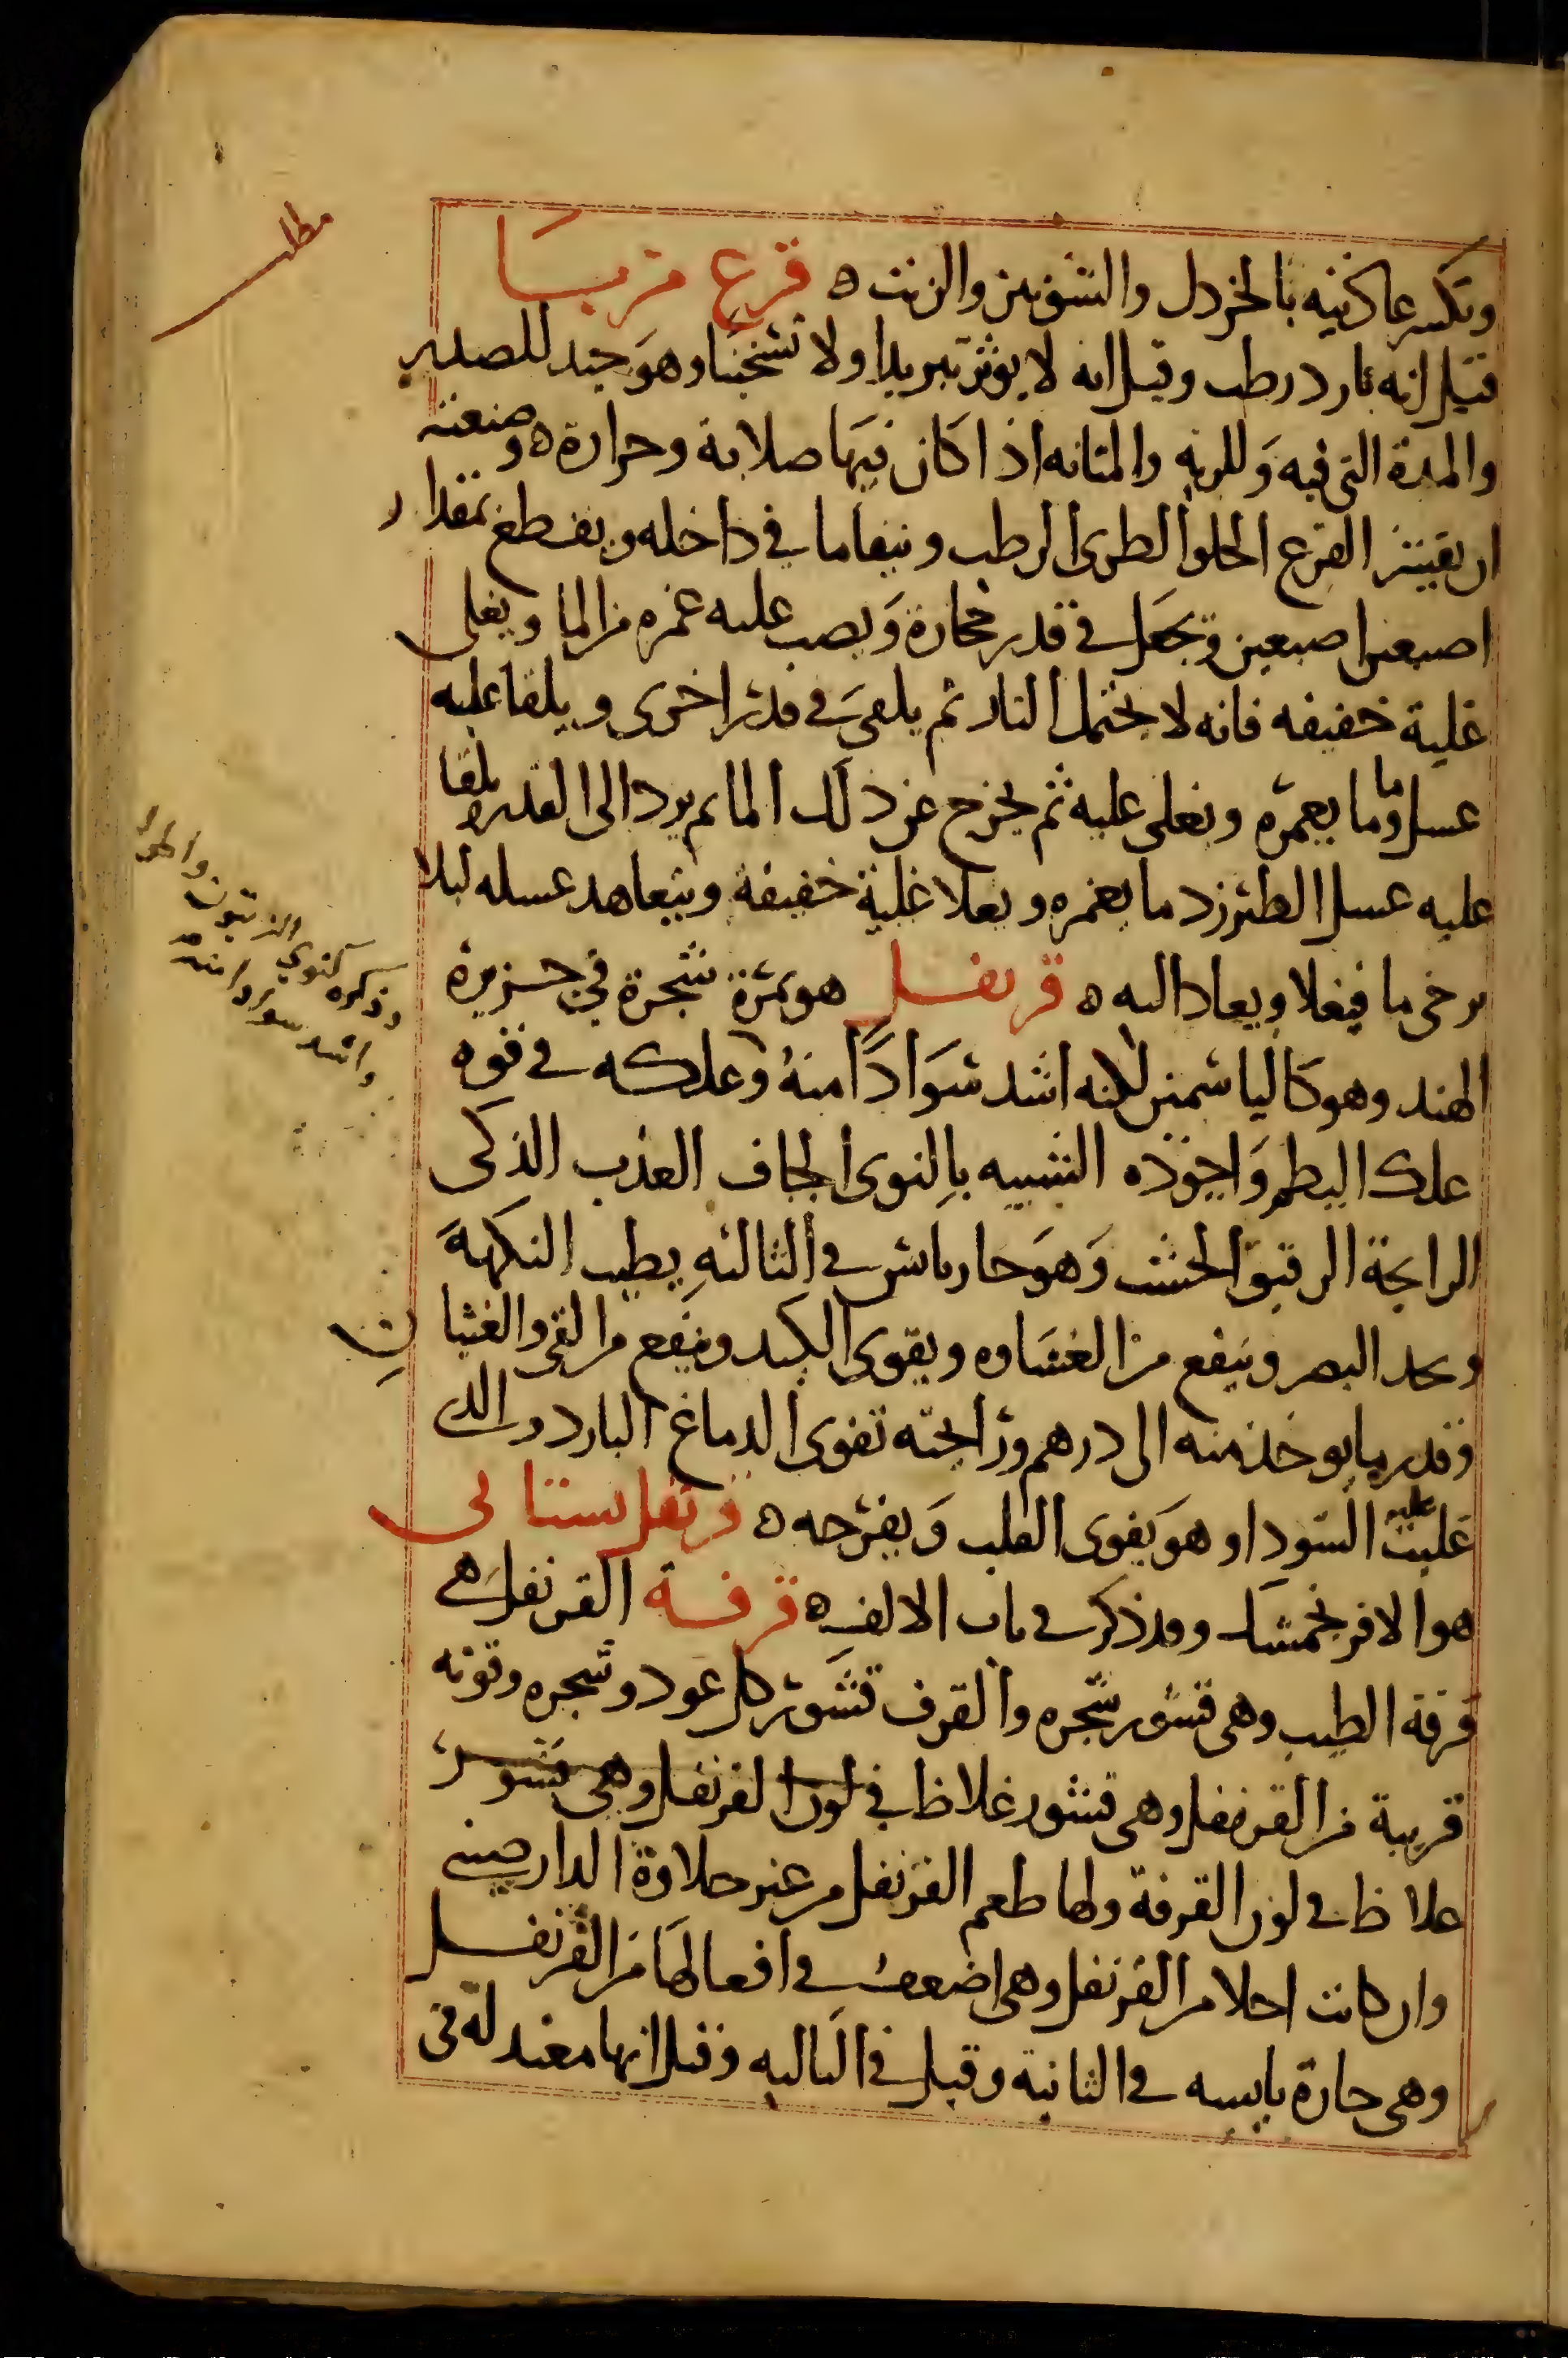 وتكسر عاديته بالخردل والشونيز والزيت ه قرع مربا
قيل انه بارد رطب وقيل انه لا يوثر تبريدا ولا تسخينا وهو جيد للصدر
والمدة التى فيه وللريه والمثانه اذا كان فيها صلابة وحرارة ه وصنعته
ان يقشر القرع الحلو الطرى الرطب وينقا ما في داخله ويقطع بمقدار
اصبعين اصبعين ويجعل في قدر فخارة ويصب عليه غمره من الما ويغلى
غلية خفيفه فانه لا يحتمل النار ثم يلقى في قدر اخرى ويلقا عليه
عسل وما ما يغمره ويغلى عليه ثم يخرج عن ذلك الما ثم يرد الى القدر ويلقا
عليه عسل الطبرزد ما يغمره ويغلا غلية خفيفة ويتعاهد عسله ليلا
يرخى ما فيغلا ويعاد اليه ه قرنفل هو ثمرة شجرة في جزيرة
الهند وهو كالياسمين لكنه اشد سوادا منه وعلكه في قوه
علك البطم واجوده الشبيه بالنوى الجاف العذب الذكى
الرايحة الرقيق الخشب وهو حار يابس في الثالثه يطيب النكهة
ويحد البصر وينفع من الغشاوه ويقوى الكبد وينفع من القى والغثيان
وقدر ما يوخذ منه الى درهم ورايحته تقوى الدماغ البارد والذى
غلبت عليه السودا وهو يقوى القلب ويفرحه ه قرنفل بستانى
هو الافرنجمشك وقد ذكر في باب الالف ه قرفة القرنفل هى
قرفة الطيب وهى قشور شجره والقرف قشور كل عود وشجره وقوته
قريبة من القرنفل وهى قشور غلاظ في لون القرنفل وهى قشور
غلاظ في لون القرفة ولها طعم القرنفل من غير حلاوة الدارصينى
وان كانت احلا من القرنفل وهى اضعف في افعالها من القرنفل
وهى حارة يابسه في الثانية وقيل في الثالثه وقيل انها معتدلة فى
مطلب
وذكره كنوى الزيتون واطول
واشد سوادا منه